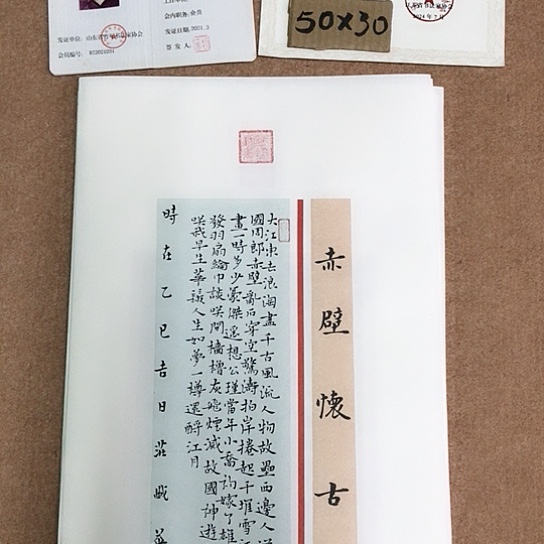 会内职务：会员
发证单位：山东省
发证日期：2021.3
会员编号：
签发人：
50X30
赤壁懷古
大江東去浪淘盡千古風流人物故壘西邊人
國周郎赤壁亂石穿空驚濤拍岸捲起千堆雪
畫一時多少豪傑遙想公瑾當年小喬初嫁了雄
發羽扇綸巾談咲間檣櫓灰飛煙滅故國神遊
咲我早生華髮人生如夢一樽還酹江月
時在乙巳吉日